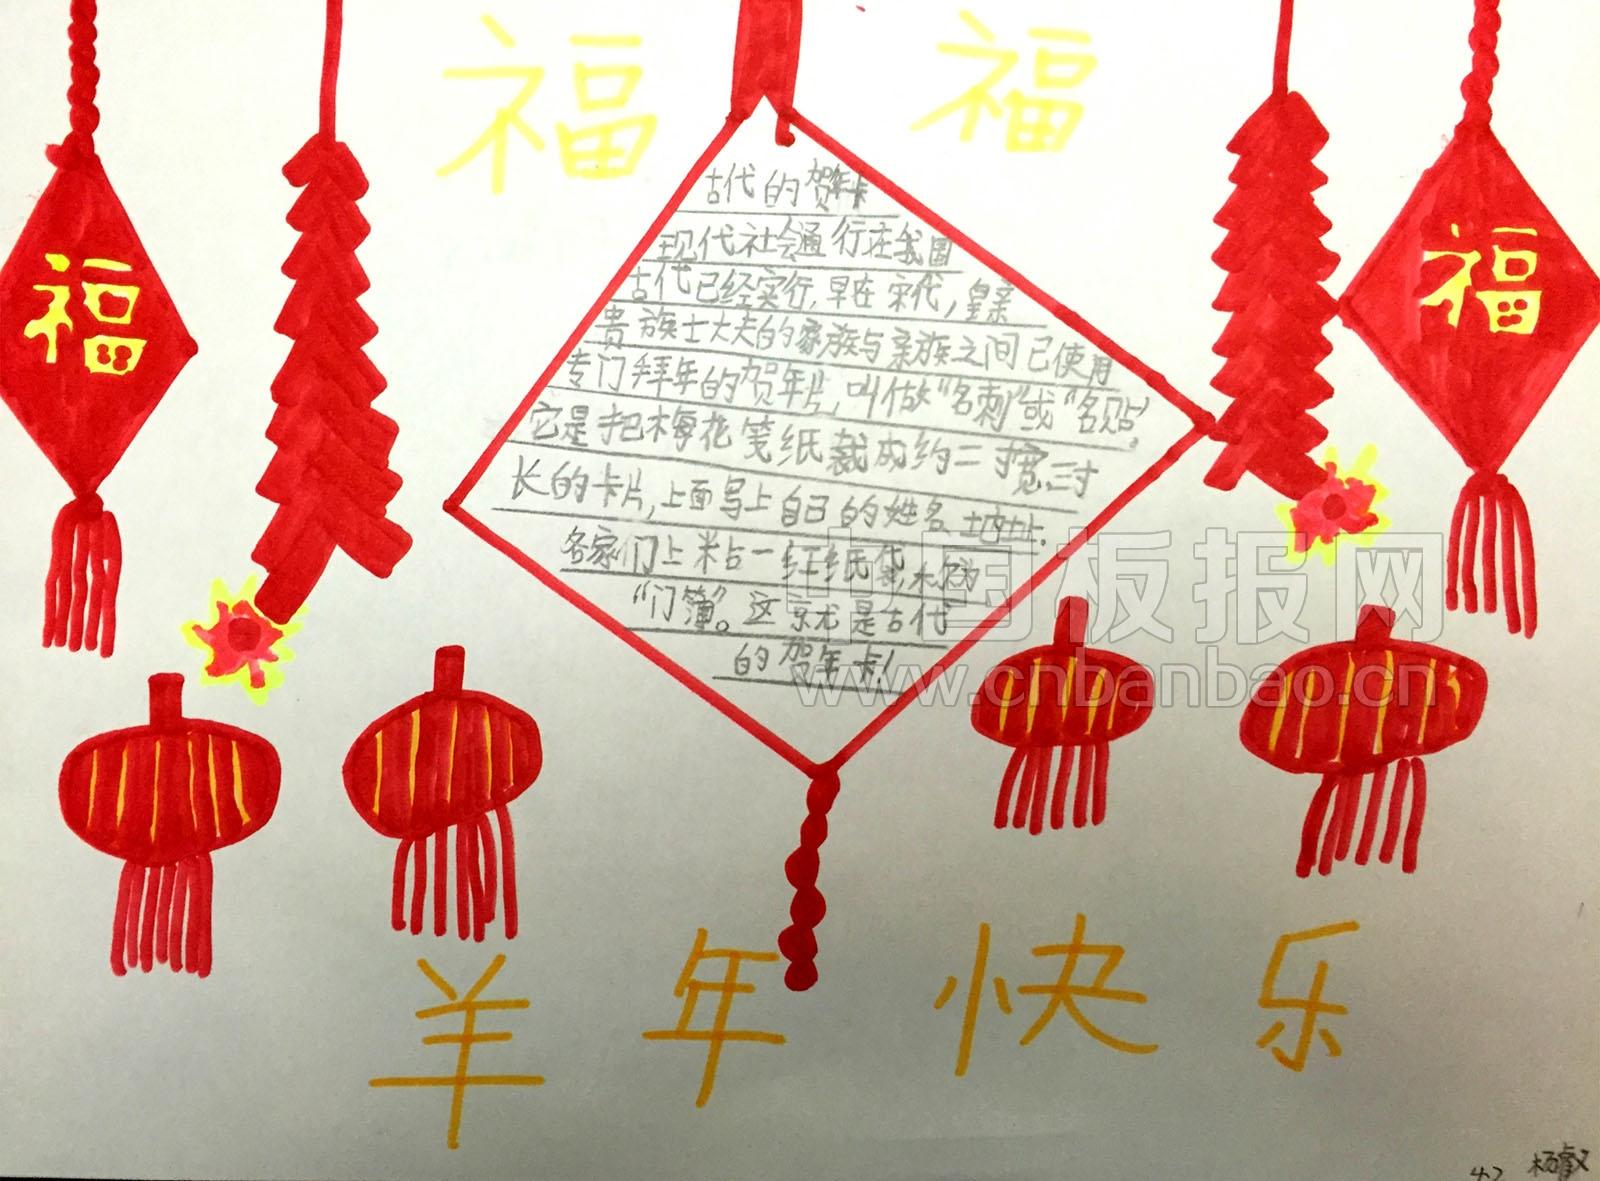 福
福
福
福
古代的贺年卡
现代社会通行在我国
古代已经实行,早在宋代,皇亲
贵族士大夫的家族与亲族之间已使用
专门拜年的贺年片,叫做"名刺"或"名贴"
它是把梅花笺纸裁成约二寸宽,三寸
长的卡片,上面写上自己的姓名、地址.
各家门上粘一红纸袋,称为
"门簿"。这就是古代
的贺年卡!
中国板报网
www.cnbanbao.cn
羊年快乐
42 杨叡